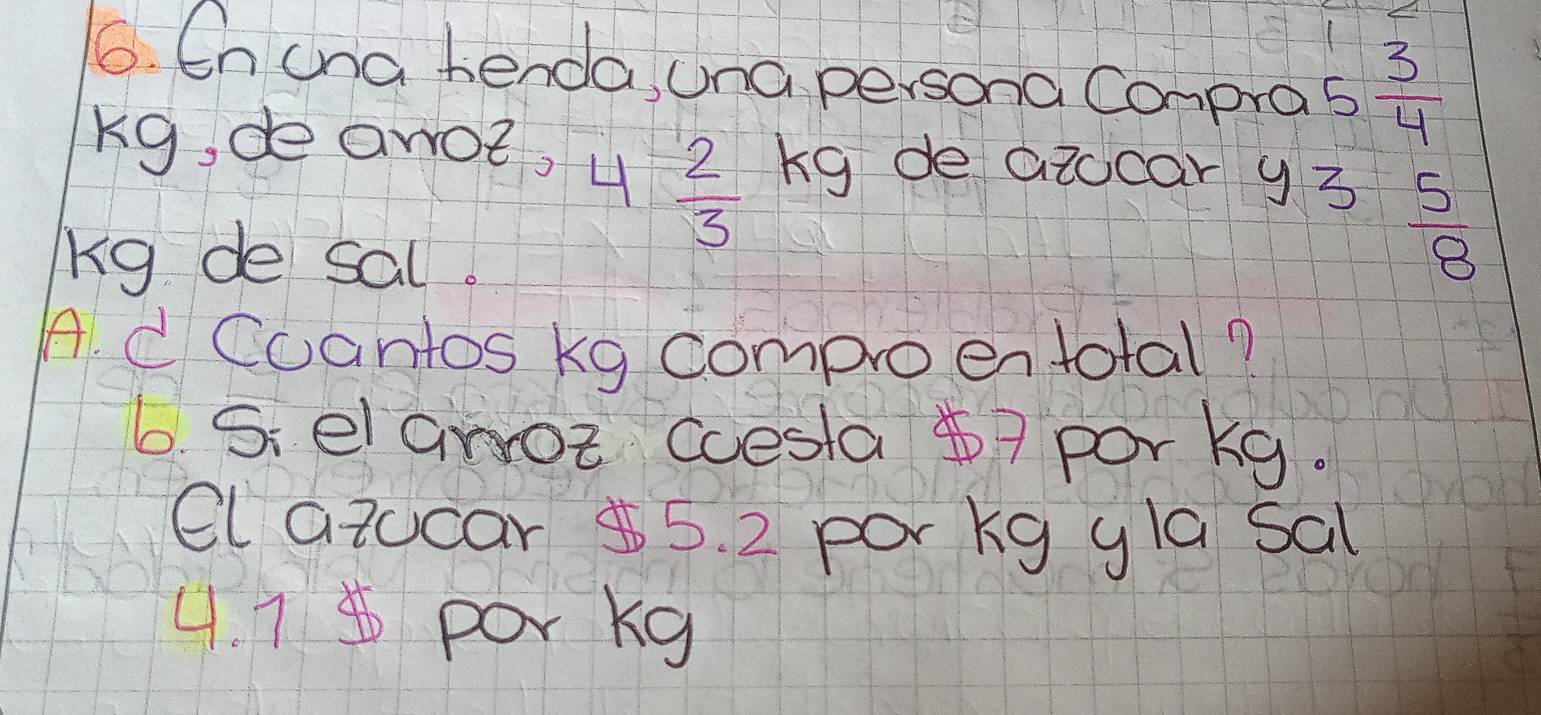 6. En una tienda, una persona compra 5 3/4
kg, de arroz, 4 2/3 kg de azucar y 3 5/8
kg de sal.
A. ¿ Cuantos kg compro en total?
b. Si el arroz cuesta $7 por kg.
El azucar $5.2 por kg y la sal
4.1 $ por kg